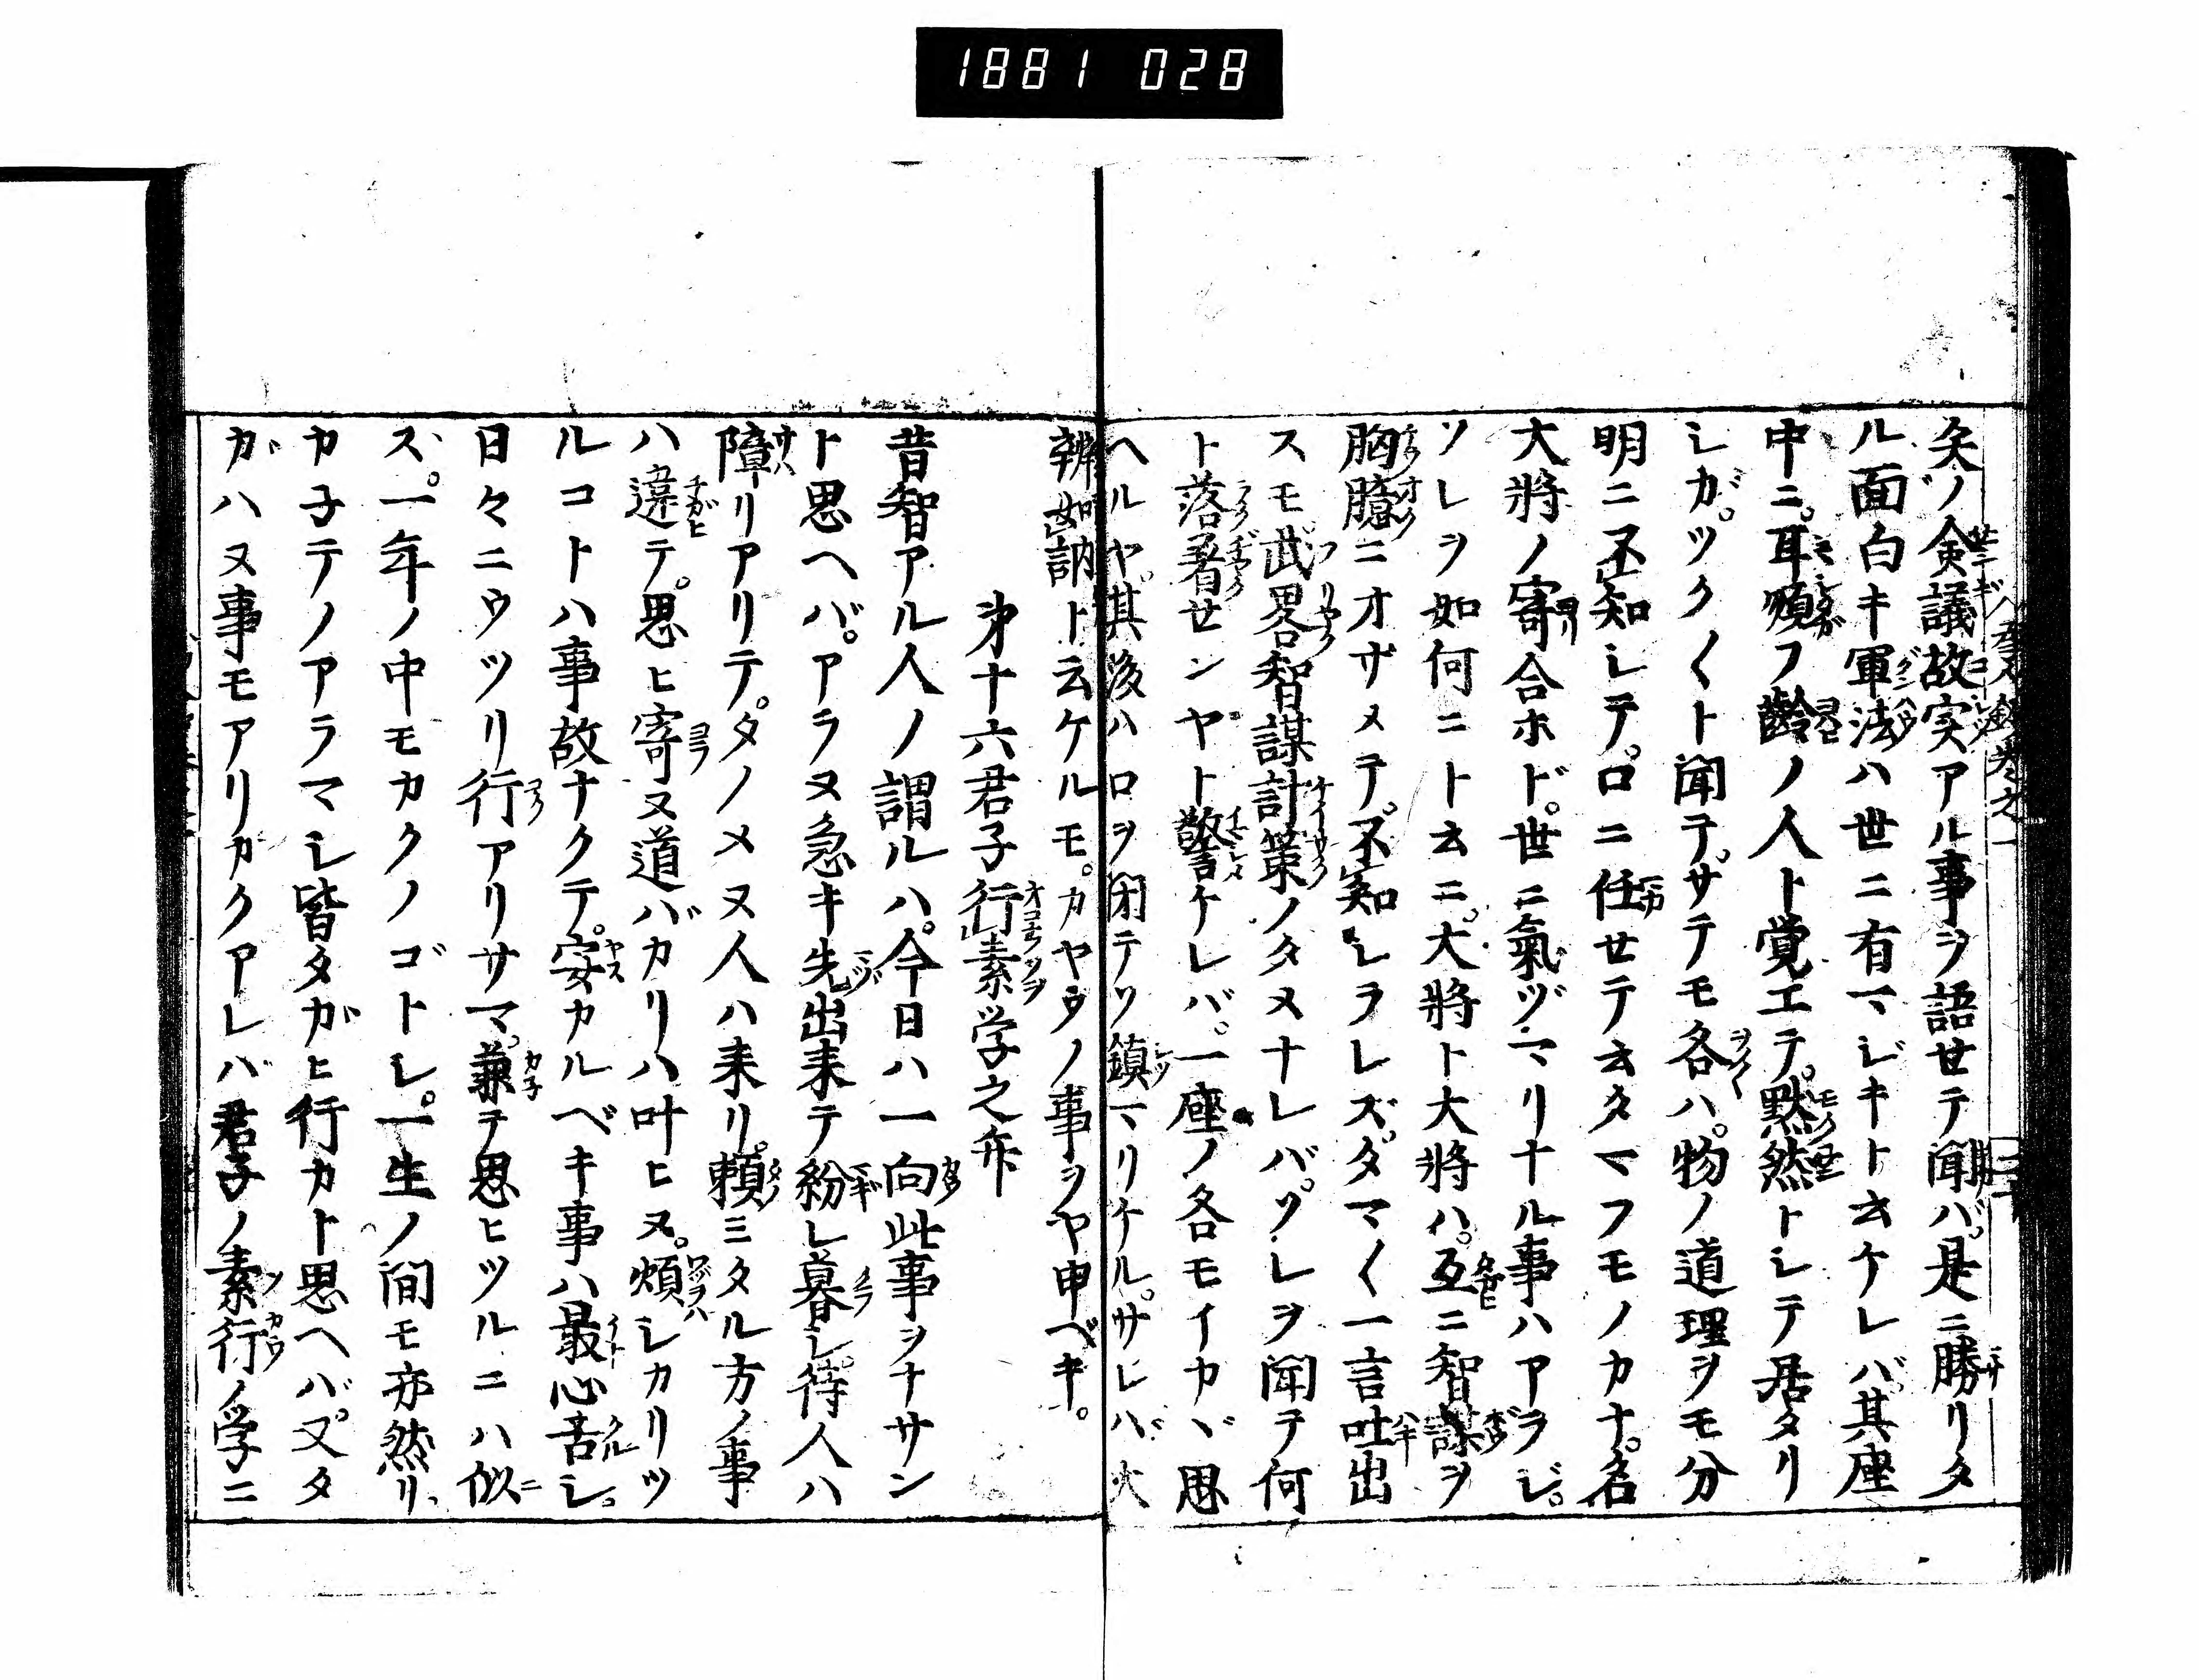 1881 028
矣ノ僉議故実アル事ヲ語セテ聞バ。是ニ勝リタ
ル面白キ軍法ハ世ニ有マジキト云ケレバ。其座
中ニ。耳順フ齢ノ人ト覚エテ。黙然トシテ居タリ
シガ。ツク〱ト聞テ。サテモ各ハ。物ノ道理ヲモ分
明ニ不知シテ。口ニ任セテ云タマフモノカナ。名
大将ノ寄合ホド。世ニ氣ヅマリナル事ハアラジ。
ソレヲ如何ニト云ニ。大將ト大將ハ。互ニ智謀ヲ
胸臆ニオサメテ。不知シラレズ。タマ〱一言吐出
スモ。武畧智謀計策ノタメナレバ。ソレヲ聞テ何
ト落着センヤト警ケレバ。一座ノ各モイカヾ思
ヘルヤ。其後ハロヲ閉テゾ鎮マリケル。サレバ大
辨如訥ト云ケルモ。カヤウノ事ヲヤ申ベキ。
㐧十六君子行素学之弁
昔智アル人ノ謂ルハ。今日ハ一向此事ヲナサン
ト思ヘバ。アラヌ急キ先出来テ紛レ暮シ。待人ハ
障リアリテ。タノメヌ人ハ来リ。頼ミタル方ノ事
ハ違テ。思ヒ寄ヌ道バカリハ叶ヒヌ。煩シカリツ
ルコトハ事故ナクテ。安カルベキ事ハ最心苦シ。
日々ニウツリ行アリサマ。兼テ思ヒツルニハ似
ズ。一年ノ中モカクノゴトシ。一生ノ間モ亦然リ。
カ子テノアラマシ皆タガヒ行カト思ヘバ。又タ
ガハヌ事モアリ。カクアレバ君子ノ素行ノ学ニ